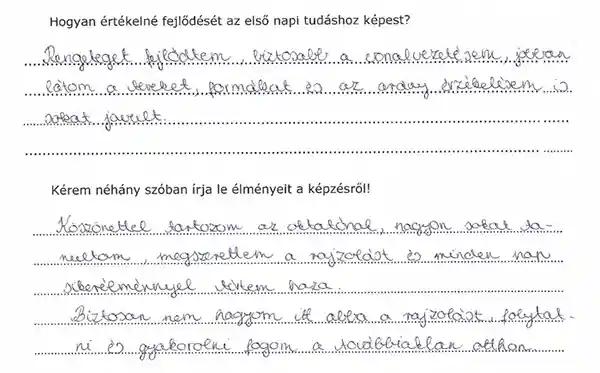 Hogyan értékelné fejlődését az első napi tudáshoz képest?
Rengeteget fejlődtem, biztosabb a vonalvezetésem, jobban
látom a tereket, formákat és az arány érzékelésem is
sokat javult.
Kérem néhány szóban írja le élményeit a képzésről!
Köszönettel tartozom az oktatónak, nagyon sokat ta-
nultam, megszerettem a rajzolást és minden nap
sikerélménnyel tértem haza.
Biztosan nem hagyom itt abba a rajzolást, folytat-
ni és gyakorolni fogom a továbbiakban otthon.